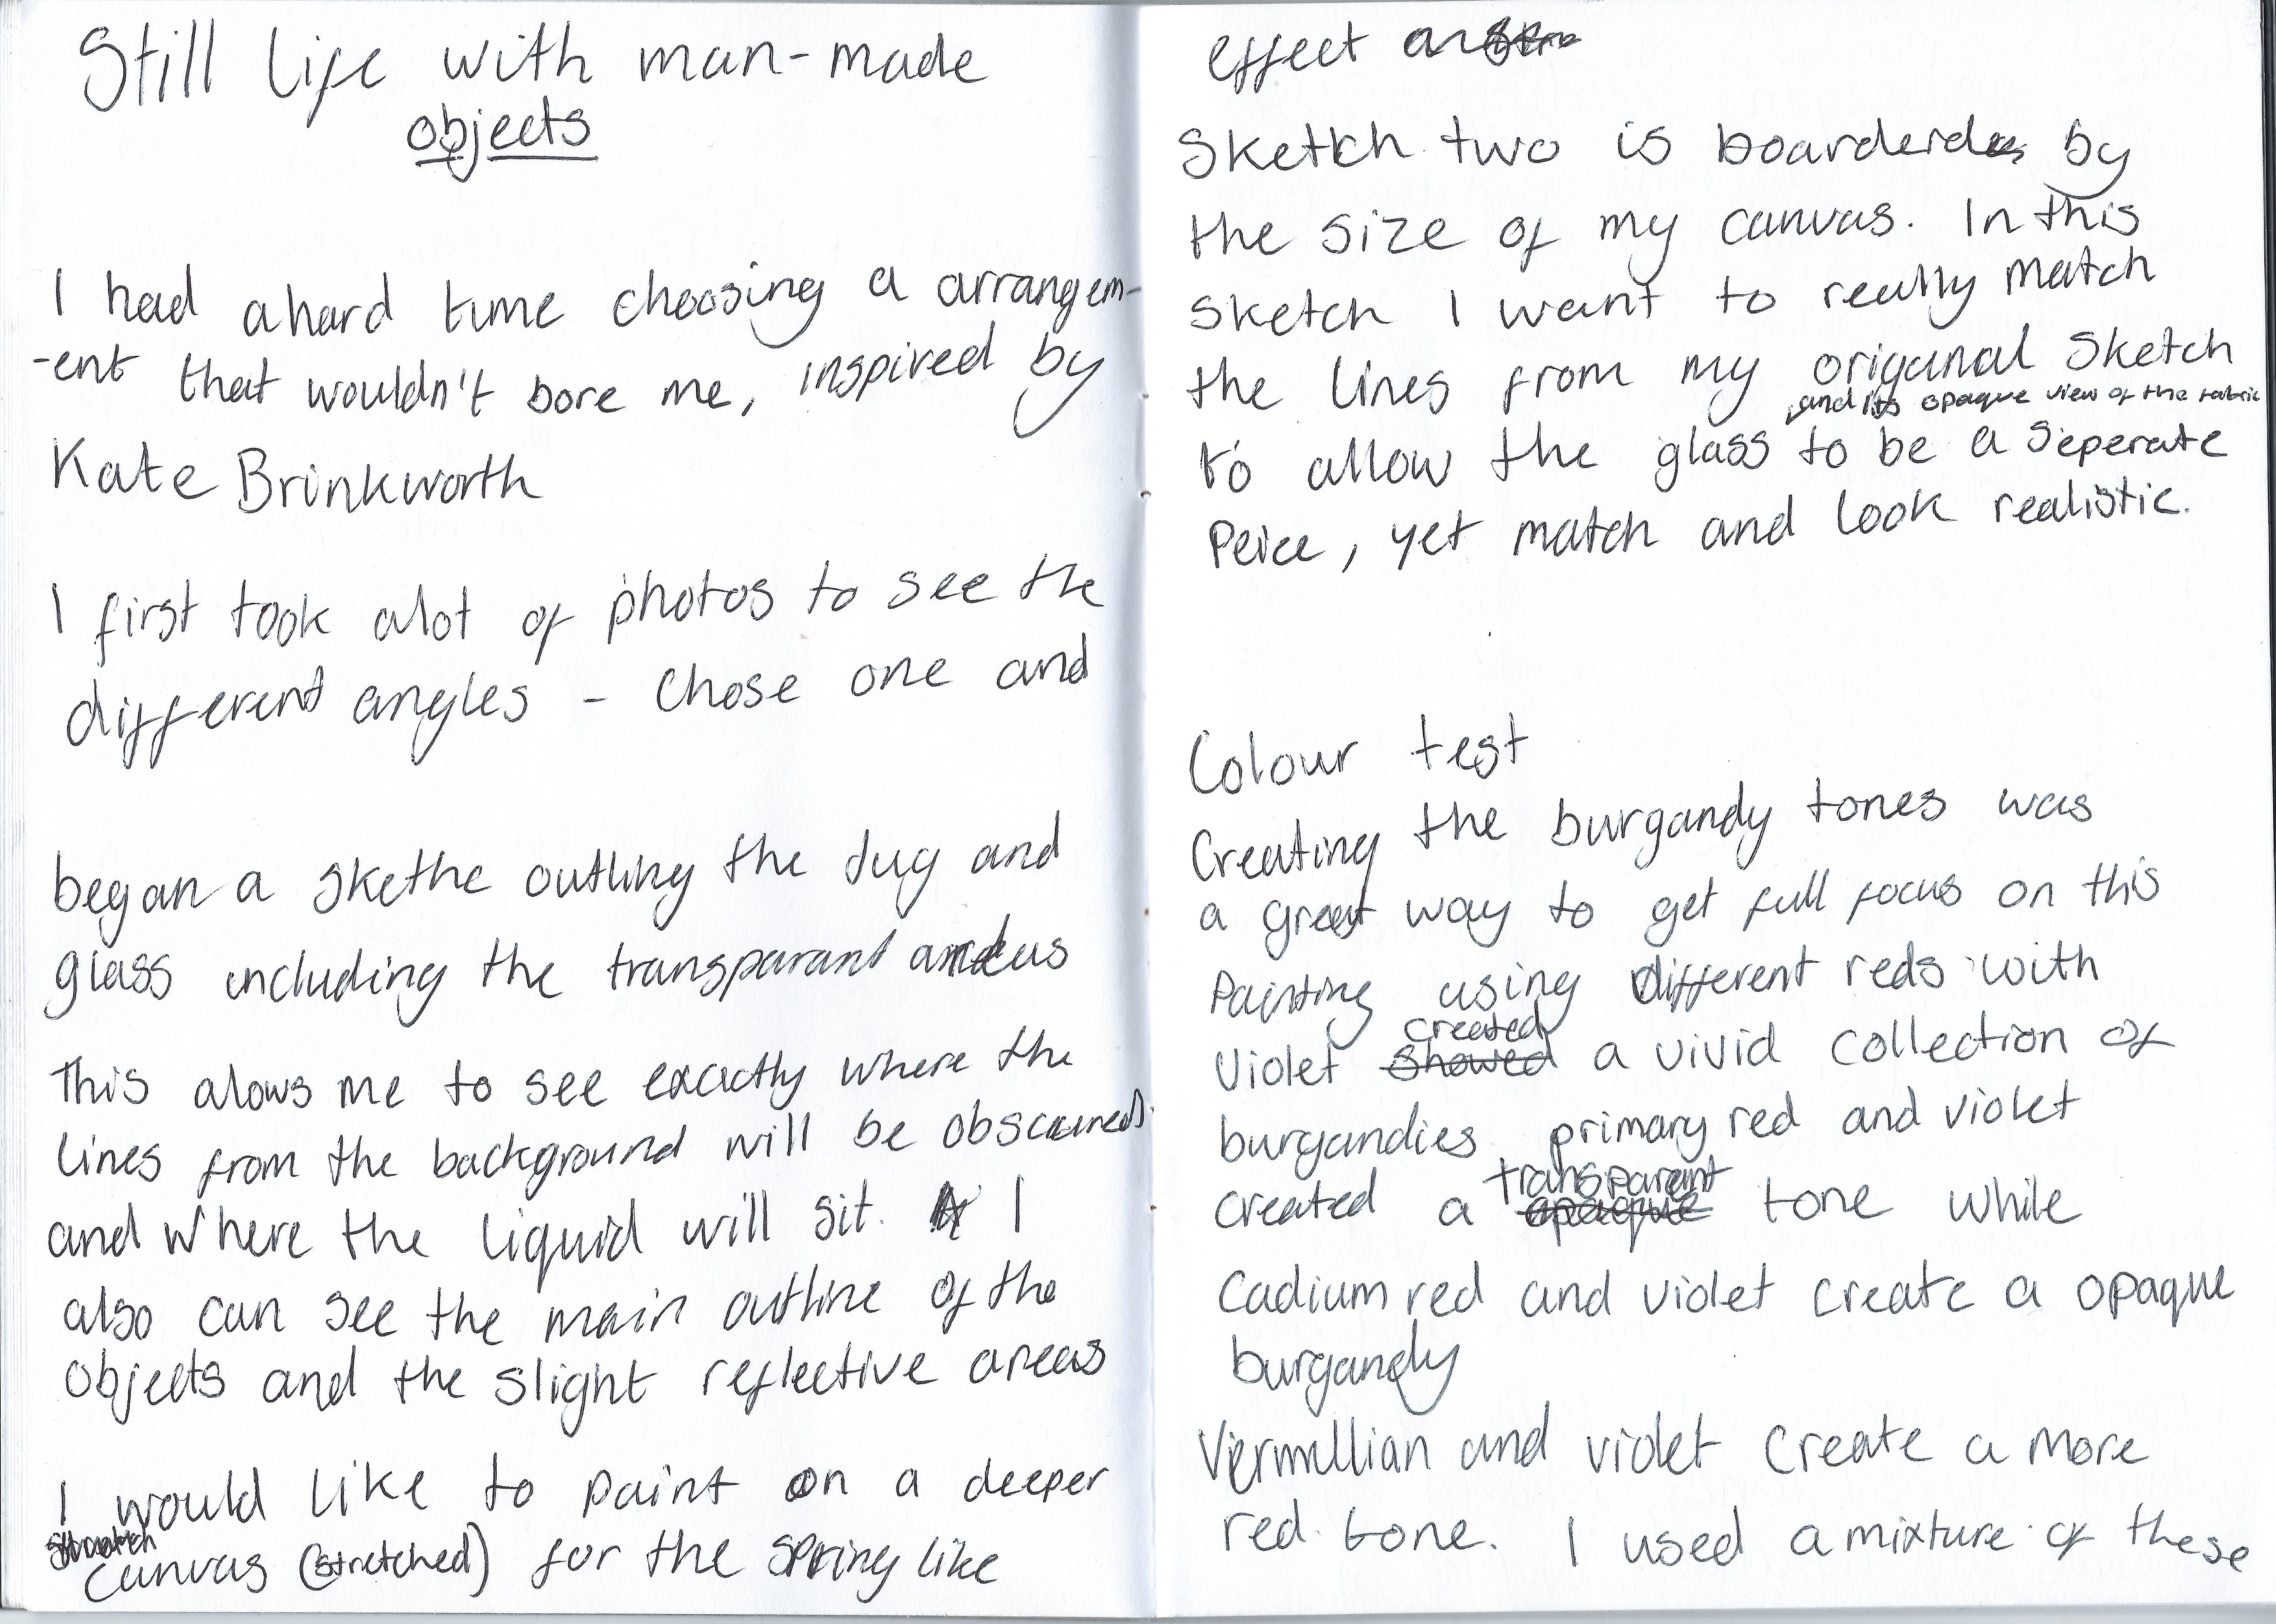 Still life with man-made
objects
I had a hard time choosing a arrangem-
-ent that wouldn't bore me, inspired by
Kate Brinkworth
I first took alot of photos to see the
different angles - Chose one and
began a skethe outling the Jug and
glass including the transparant areas
This alows me to see exactly where the
lines from the background will be obscured
and where the liquid will sit. I
also can see the main outline of the
objects and the slight reflective areas
I would like to paint on a deeper
canvas (stretched) for the spring like
effect
Sketch two is boarderd by
the size of my canvas. In this
sketch I want to really match
the lines from my origanal sketch
and its opaque view of the fabric
to allow the glass to be a seperate
Peice, yet match and look realistic.
Colour test
Creating the burgandy tones was
a great way to get full focus on this
Painting using different reds with
created
violet showed a vivid collection of
burgandies primary red and violet
transparent
created a opaque tone while
Cadium red and violet create a opaque
burgandy
Vermillian and violet create a more
red tone. I used a mixture of these